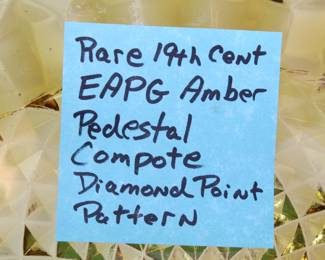 Rare 19th Cent
EAPG Amber
Pedestal
Compote
Diamond Point
Pattern